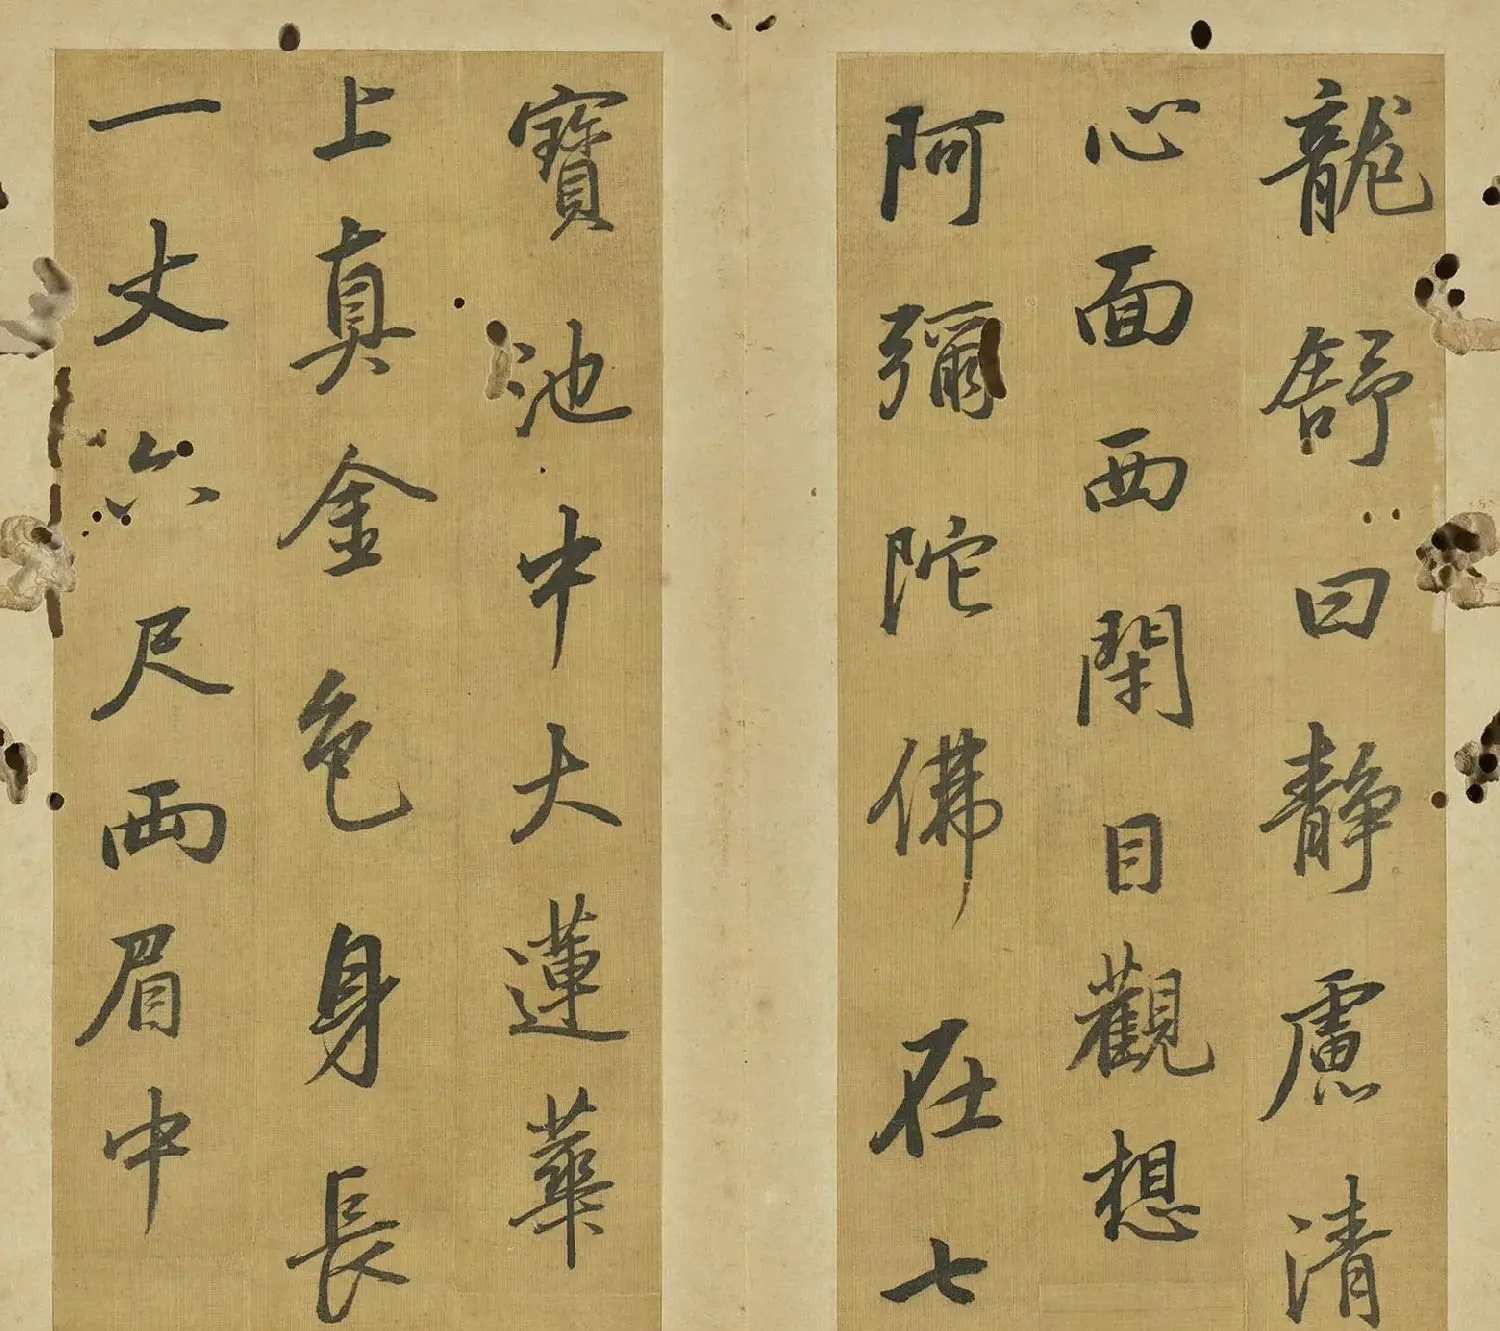 龍舒曰靜慮清
心面西閉目觀想
阿彌陀佛在七
寶池中大蓮華
上真金色身長
一丈六尺兩眉中